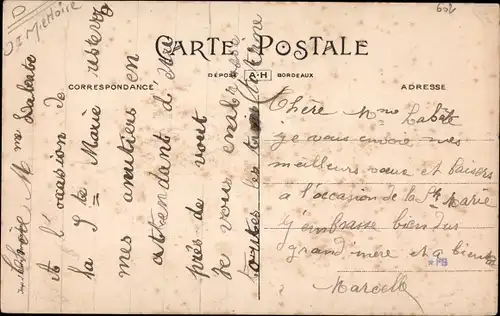 CARTE POSTALE
DÉPOSÉ A.H BORDEAUX
CORRESPONDANCE
ADRESSE
à l'occasion de
la Ste Marie
mes amitiers en
attendant d'être
près de vous
Je vous embrasse
toutes les
Chère Mme Labat
je vous envoie mes
meilleurs vœux et baisers
a l'occasion de la Ste Marie
J'embrasse bien dur
grand mère et a bientôt
Marcelle
*PB